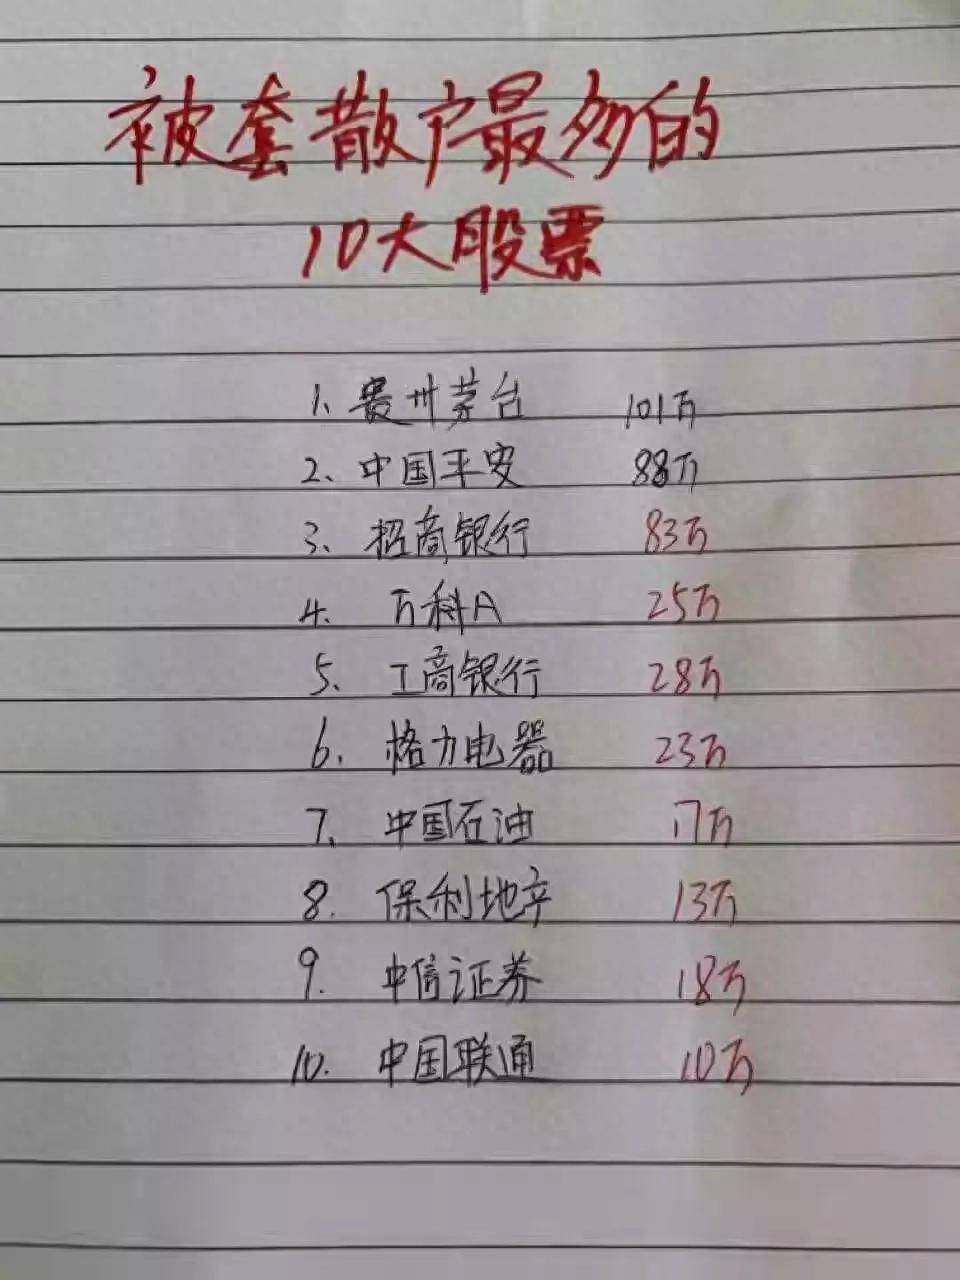 被套散户最多的
10大股票
1、贵州茅台 101万
2、中国平安 88万
3、招商银行 83万
4、万科A 25万
5、工商银行 28万
6、格力电器 23万
7、中国石油 17万
8. 保利地产 13万
9. 中信证券 18万
10. 中国联通 10万